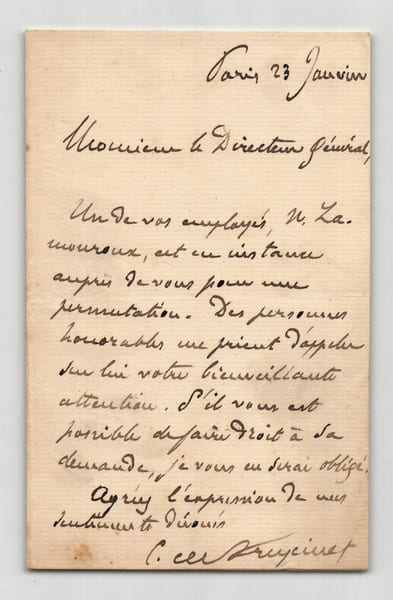 Paris 23 Janvier
Monsieur le Directeur Général,
Un de vos employés, M. La-
mouroux, est en instance
auprès de vous pour une
permutation. Des personnes
honorables me prient d'appeler
sur lui votre bienveillante
attention. S'il vous est
possible de faire droit à sa
demande, je vous en serai obligé.
Agréez l'expression de mes
sentiments dévoués
C. de Freycinet